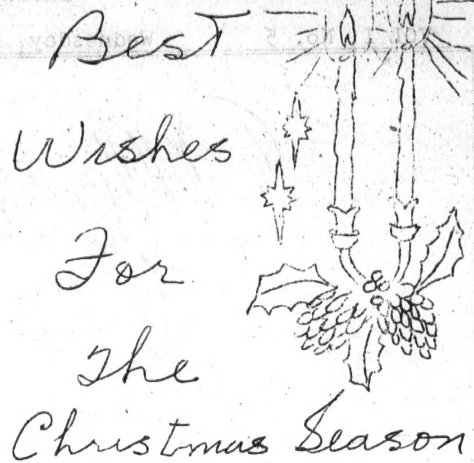 Best
Wishes
For
The
Christmas Season